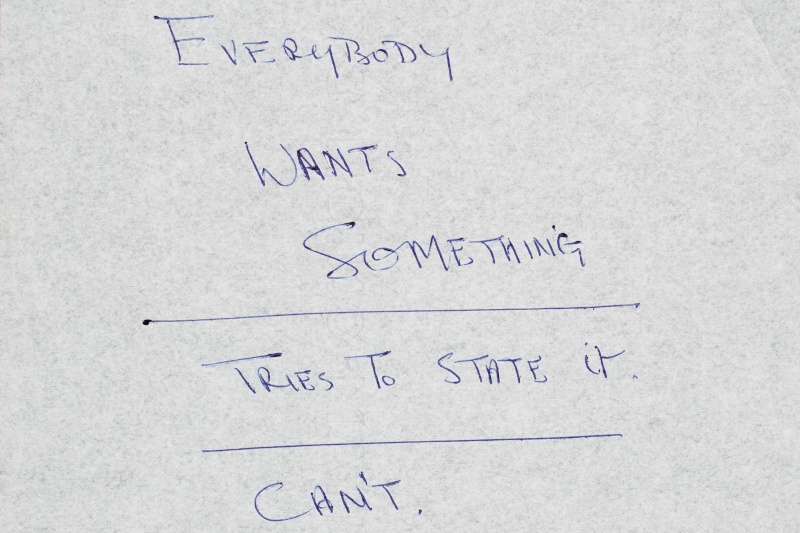 EVERYBODY
WANTS
SOMETHING
TRIES TO STATE it.
CAN'T.